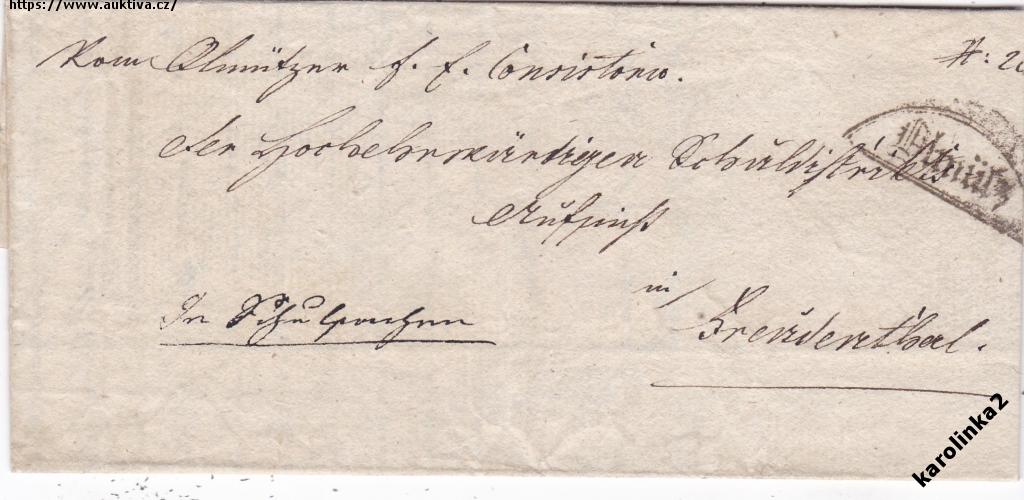 https://www.auktiva.cz/
Vom Olmützer f. e. Consistorio.
Olmütz
der Hochehrwürdigen Schuldistrikts
Aufsicht
in
In Schulsachen
Freudenthal.
karolinka2